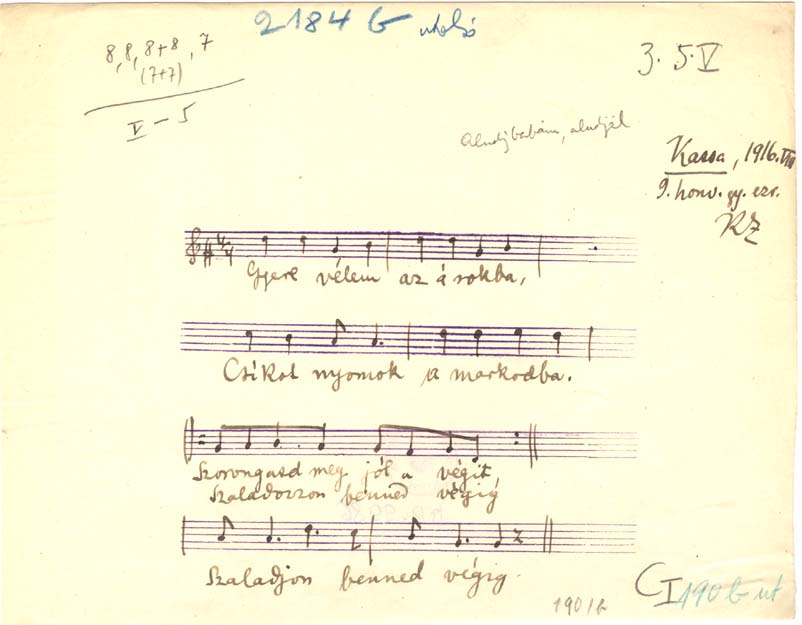 2184 b utolsó
8, 8, 8+8, 7
(7+7)
V – 5
3. 5. V
Aludj babám, aludjál
Kassa, 1916. VIII
9. honv. gy. ezr.
KZ
4/4
Gyere vélem az á rokba,
Csíkot nyomok a markodba.
Szorongasd meg jól a végit,
Szaladozzon benned végig
Szaladjon benned végig.
190/b
C I 190 b ut